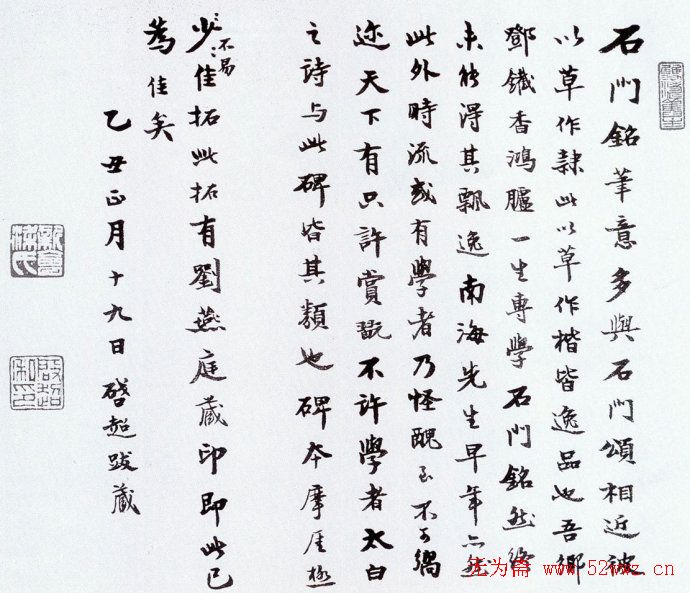 石門銘筆意多與石門頌相近彼
以草作隸此以草作楷皆逸品也吾鄉
鄧鐵香鴻臚一生專學石門銘然終
未能得其飄逸南海先生早年亦然
此外時流或有學者乃怪醜至不可嚮
迩天下有只許賞翫不許學者太白
之詩與此碑皆其類也碑本摩厓極
少佳拓此拓有劉燕庭藏印即此已
不易
為佳矣
乙丑正月十九日啓超跋藏
新會梁氏
啟超私印
先为斋 www.52wwz.cn